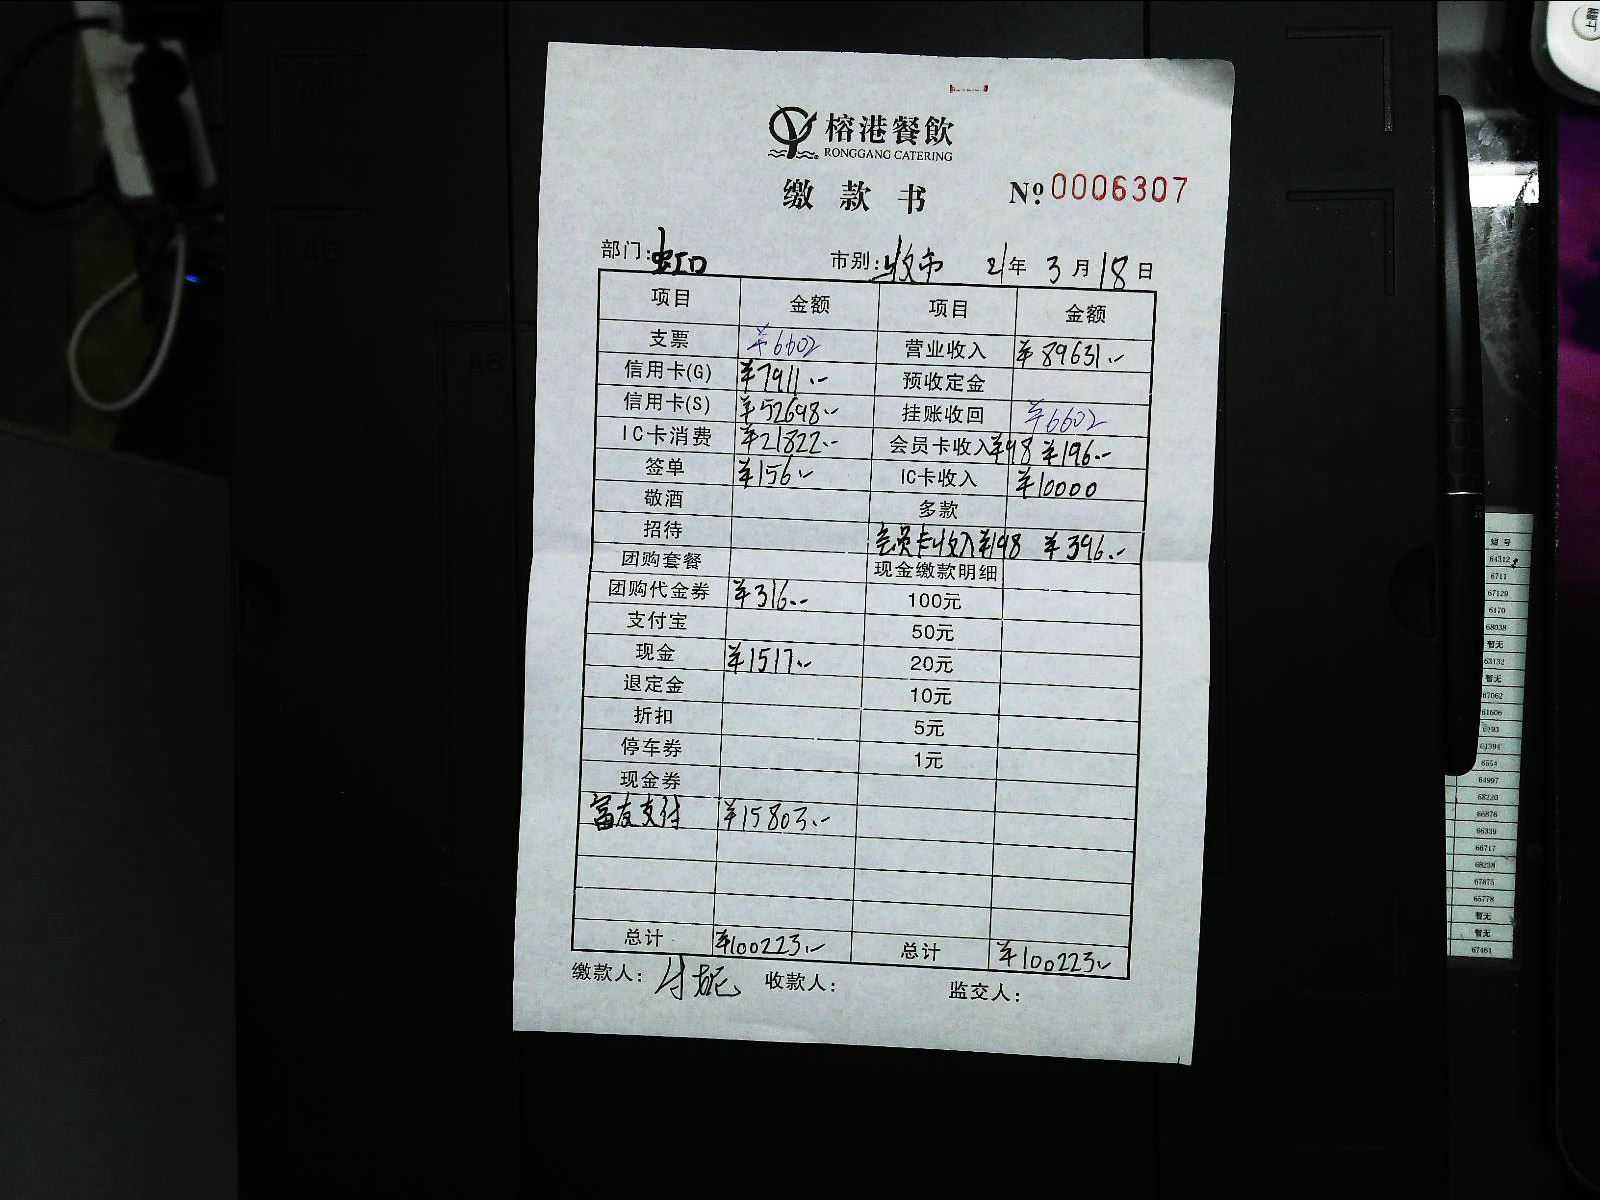 榕港餐飲
RONGGANG CATERING
缴款书 №0006307
部门:虹口 市别:收市 21年3月18日
项目 金额 项目 金额
支票 ¥6602 营业收入 ¥89631.-
信用卡(G) ¥7911.- 预收定金
信用卡(S) ¥52698.- 挂账收回 ¥6602
IC卡消费 ¥21822.- 会员卡收入¥98 ¥196.-
签单 ¥156.- IC卡收入 ¥10000
敬酒 多款
招待 会员卡收入¥198 ¥396.-
团购套餐 现金缴款明细
团购代金券 ¥316.- 100元
支付宝 50元
现金 ¥1517.- 20元
退定金 10元
折扣 5元
停车券 1元
现金券
富友支付 ¥15803.-
总计 ¥100223.- 总计 ¥100223.-
缴款人: 收款人: 监交人:
短号
64312
6711
67129
6170
68038
暂无
63132
暂无
67062
61606
6193
61394
6554
64997
68220
66876
66339
66717
68238
67875
65778
暂无
暂无
67461
上翻
A5
A6